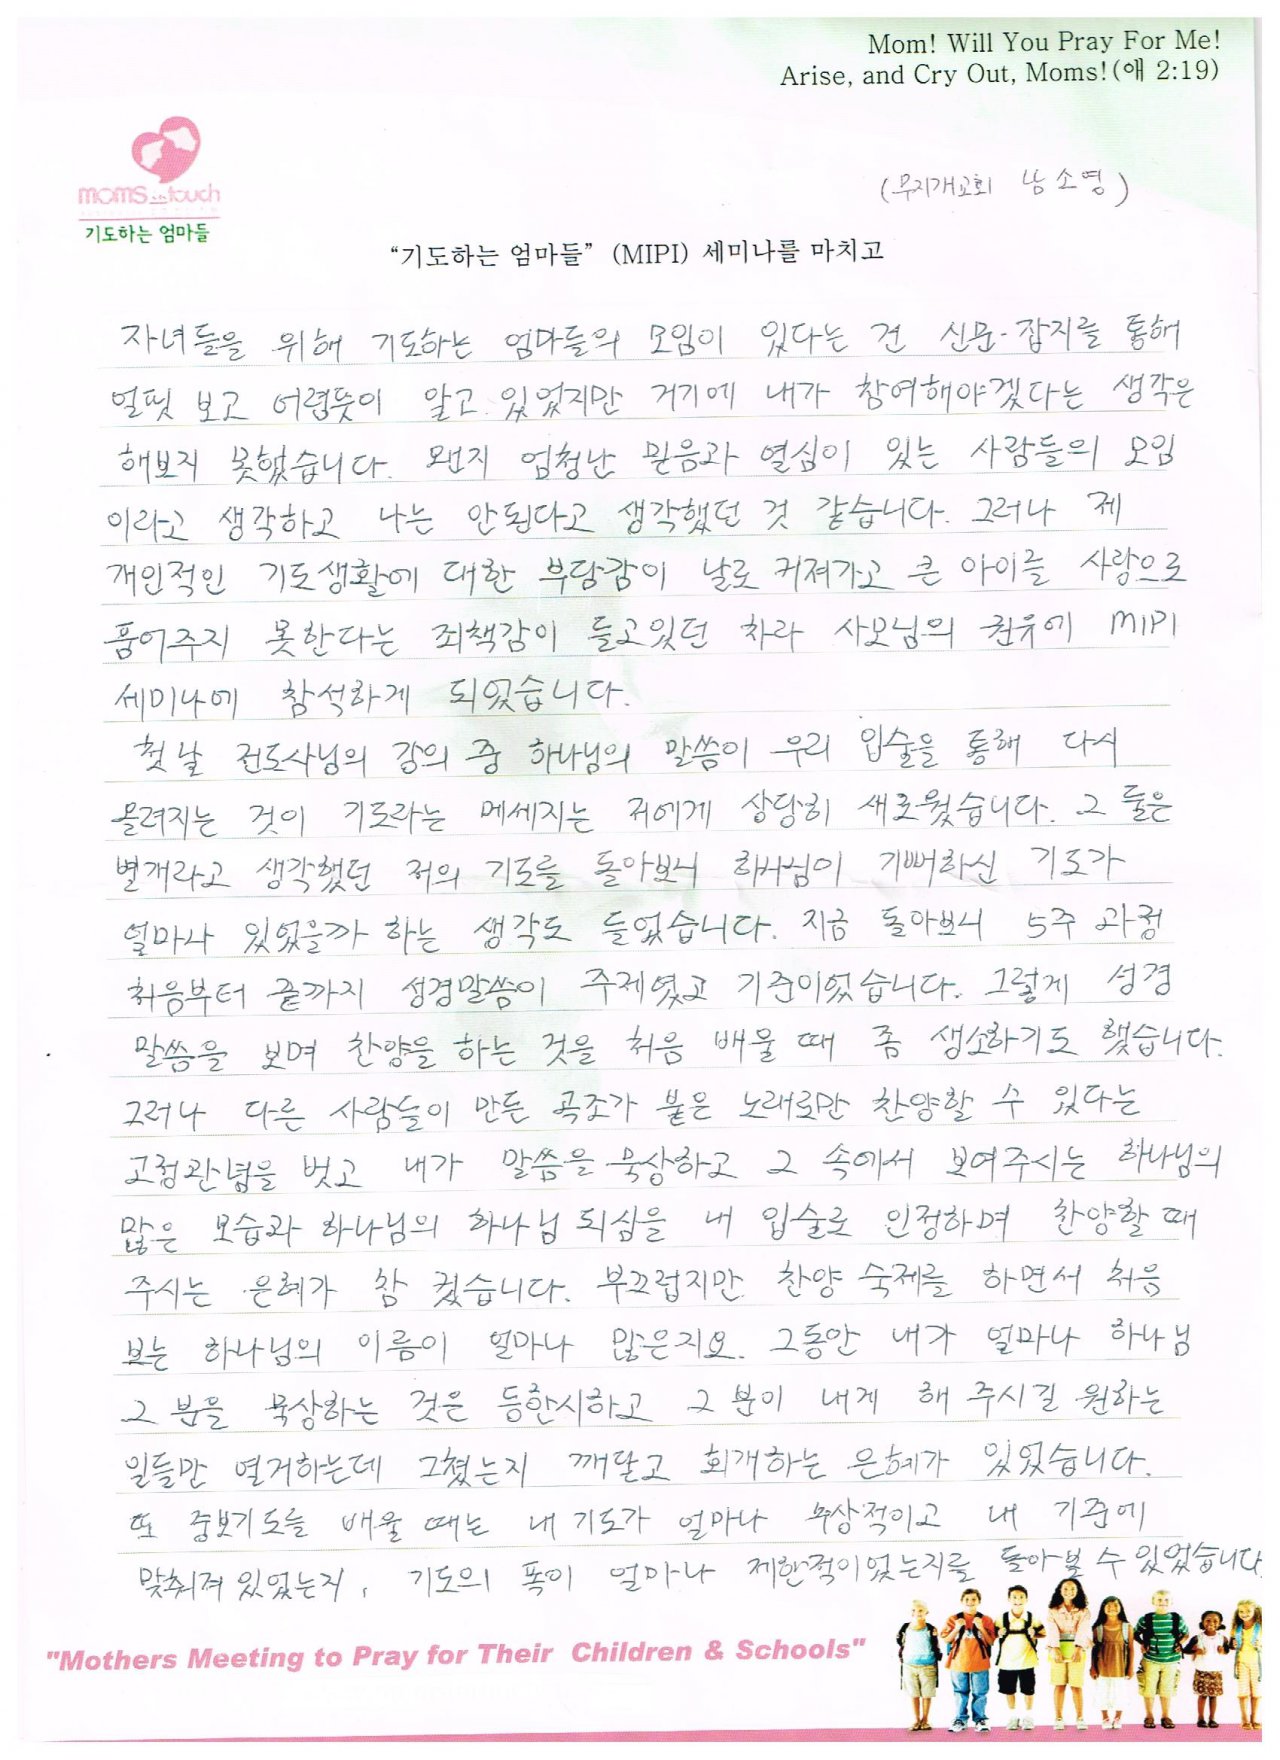 Mom! Will You Pray For Me!
Arise, and Cry Out, Moms!(애 2:19)
moms in touch
기도하는 엄마들
(무지개교회 남소영)
“기도하는 엄마들” (MIPI) 세미나를 마치고
자녀들을 위해 기도하는 엄마들의 모임이 있다는 건 신문·잡지를 통해
얼핏 보고 어렴풋이 알고 있었지만 거기에 내가 참여해야겠다는 생각은
해보지 못했습니다. 왠지 엄청난 믿음과 열심이 있는 사람들의 모임
이라고 생각하고 나는 안된다고 생각했던 것 같습니다. 그러나 제
개인적인 기도생활에 대한 부담감이 날로 커져가고 큰 아이를 사랑으로
품어주지 못한다는 죄책감이 들고있던 차라 사모님의 권유에 MIPI
세미나에 참석하게 되었습니다.
첫날 전도사님의 강의 중 하나님의 말씀이 우리 입술을 통해 다시
올려지는 것이 기도라는 메세지는 저에게 상당히 새로웠습니다. 그 둘은
별개라고 생각했던 저의 기도를 돌아보니 하나님이 기뻐하신 기도가
얼마나 있었을까 하는 생각도 들었습니다. 지금 돌아보니 5주 과정
처음부터 끝까지 성경말씀이 주제였고 기준이었습니다. 그렇게 성경
말씀을 보며 찬양을 하는 것을 처음 배울 때 좀 생소하기도 했습니다.
그러나 다른 사람들이 만든 곡조가 붙은 노래로만 찬양할 수 있다는
고정관념을 벗고 내가 말씀을 묵상하고 그 속에서 보여주시는 하나님의
많은 모습과 하나님의 하나님 되심을 내 입술로 인정하며 찬양할 때
주시는 은혜가 참 컸습니다. 부끄럽지만 찬양 숙제를 하면서 처음
보는 하나님의 이름이 얼마나 많은지요. 그동안 내가 얼마나 하나님
그 분을 묵상하는 것은 등한시하고 그 분이 내게 해 주시길 원하는
일들만 열거하는데 그쳤는지 깨닫고 회개하는 은혜가 있었습니다.
또 중보기도를 배울 때는 내 기도가 얼마나 추상적이고 내 기준에
맞춰져 있었는지, 기도의 폭이 얼마나 제한적이었는지를 돌아볼 수 있었습니다
"Mothers Meeting to Pray for Their Children & Schools"